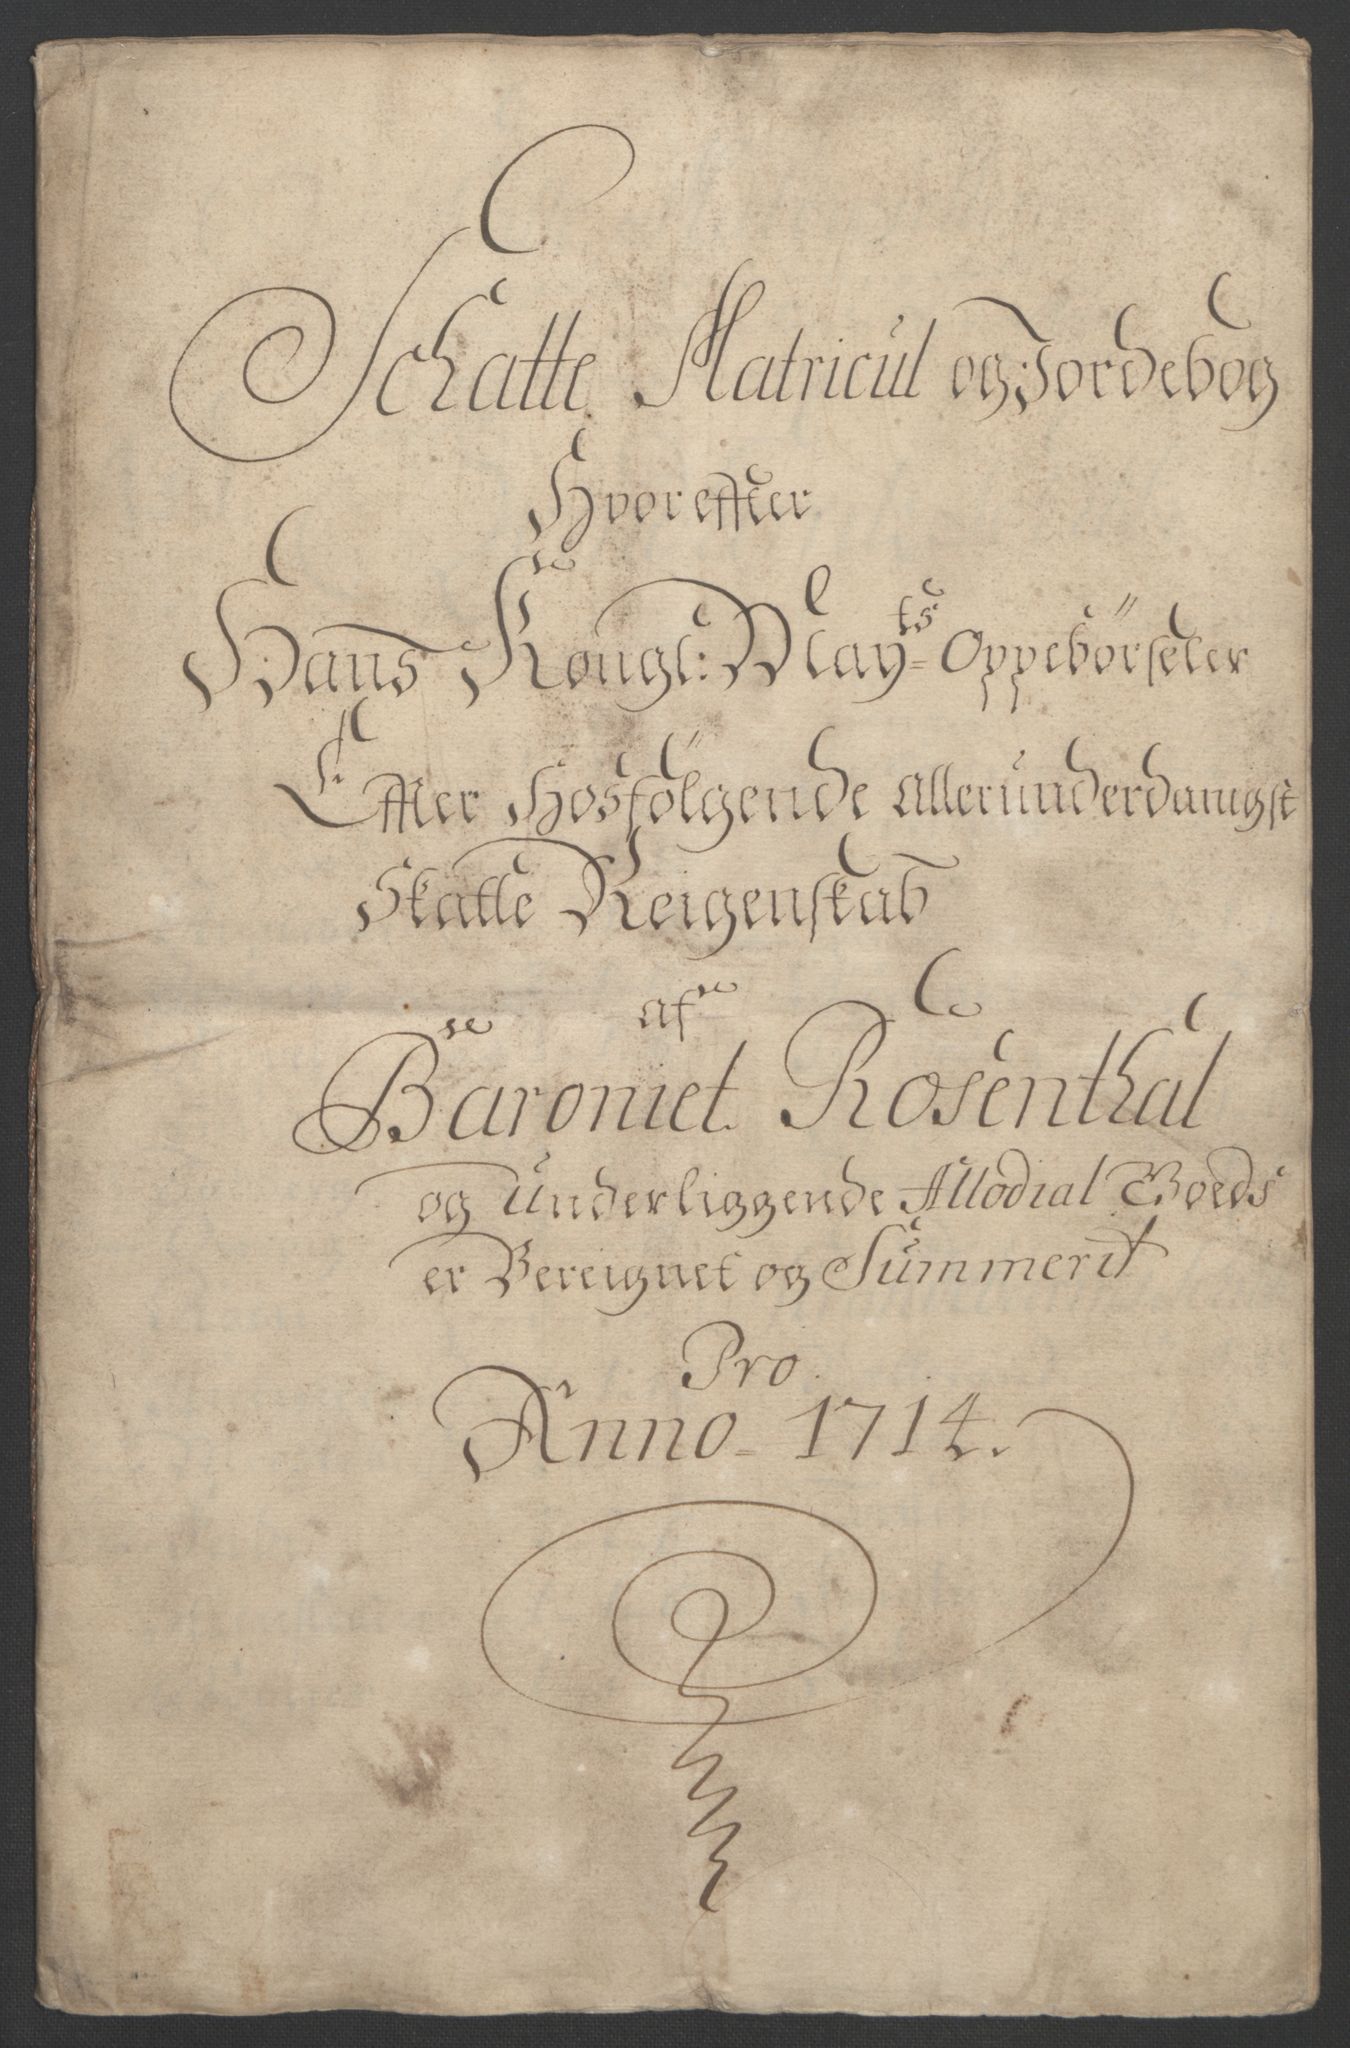 Schatte Matricul og Jordebog
Hvoreffter
Hans Kongl: May^ts Oppebörseler
Effter Hosfölgende Allerunderdanigst
Skatte Reigenskab
af
Baroniet Rosenthal
og Underliggende Allodial Goeds
er Bereignet og Summerit
Pro
Anno 1714.